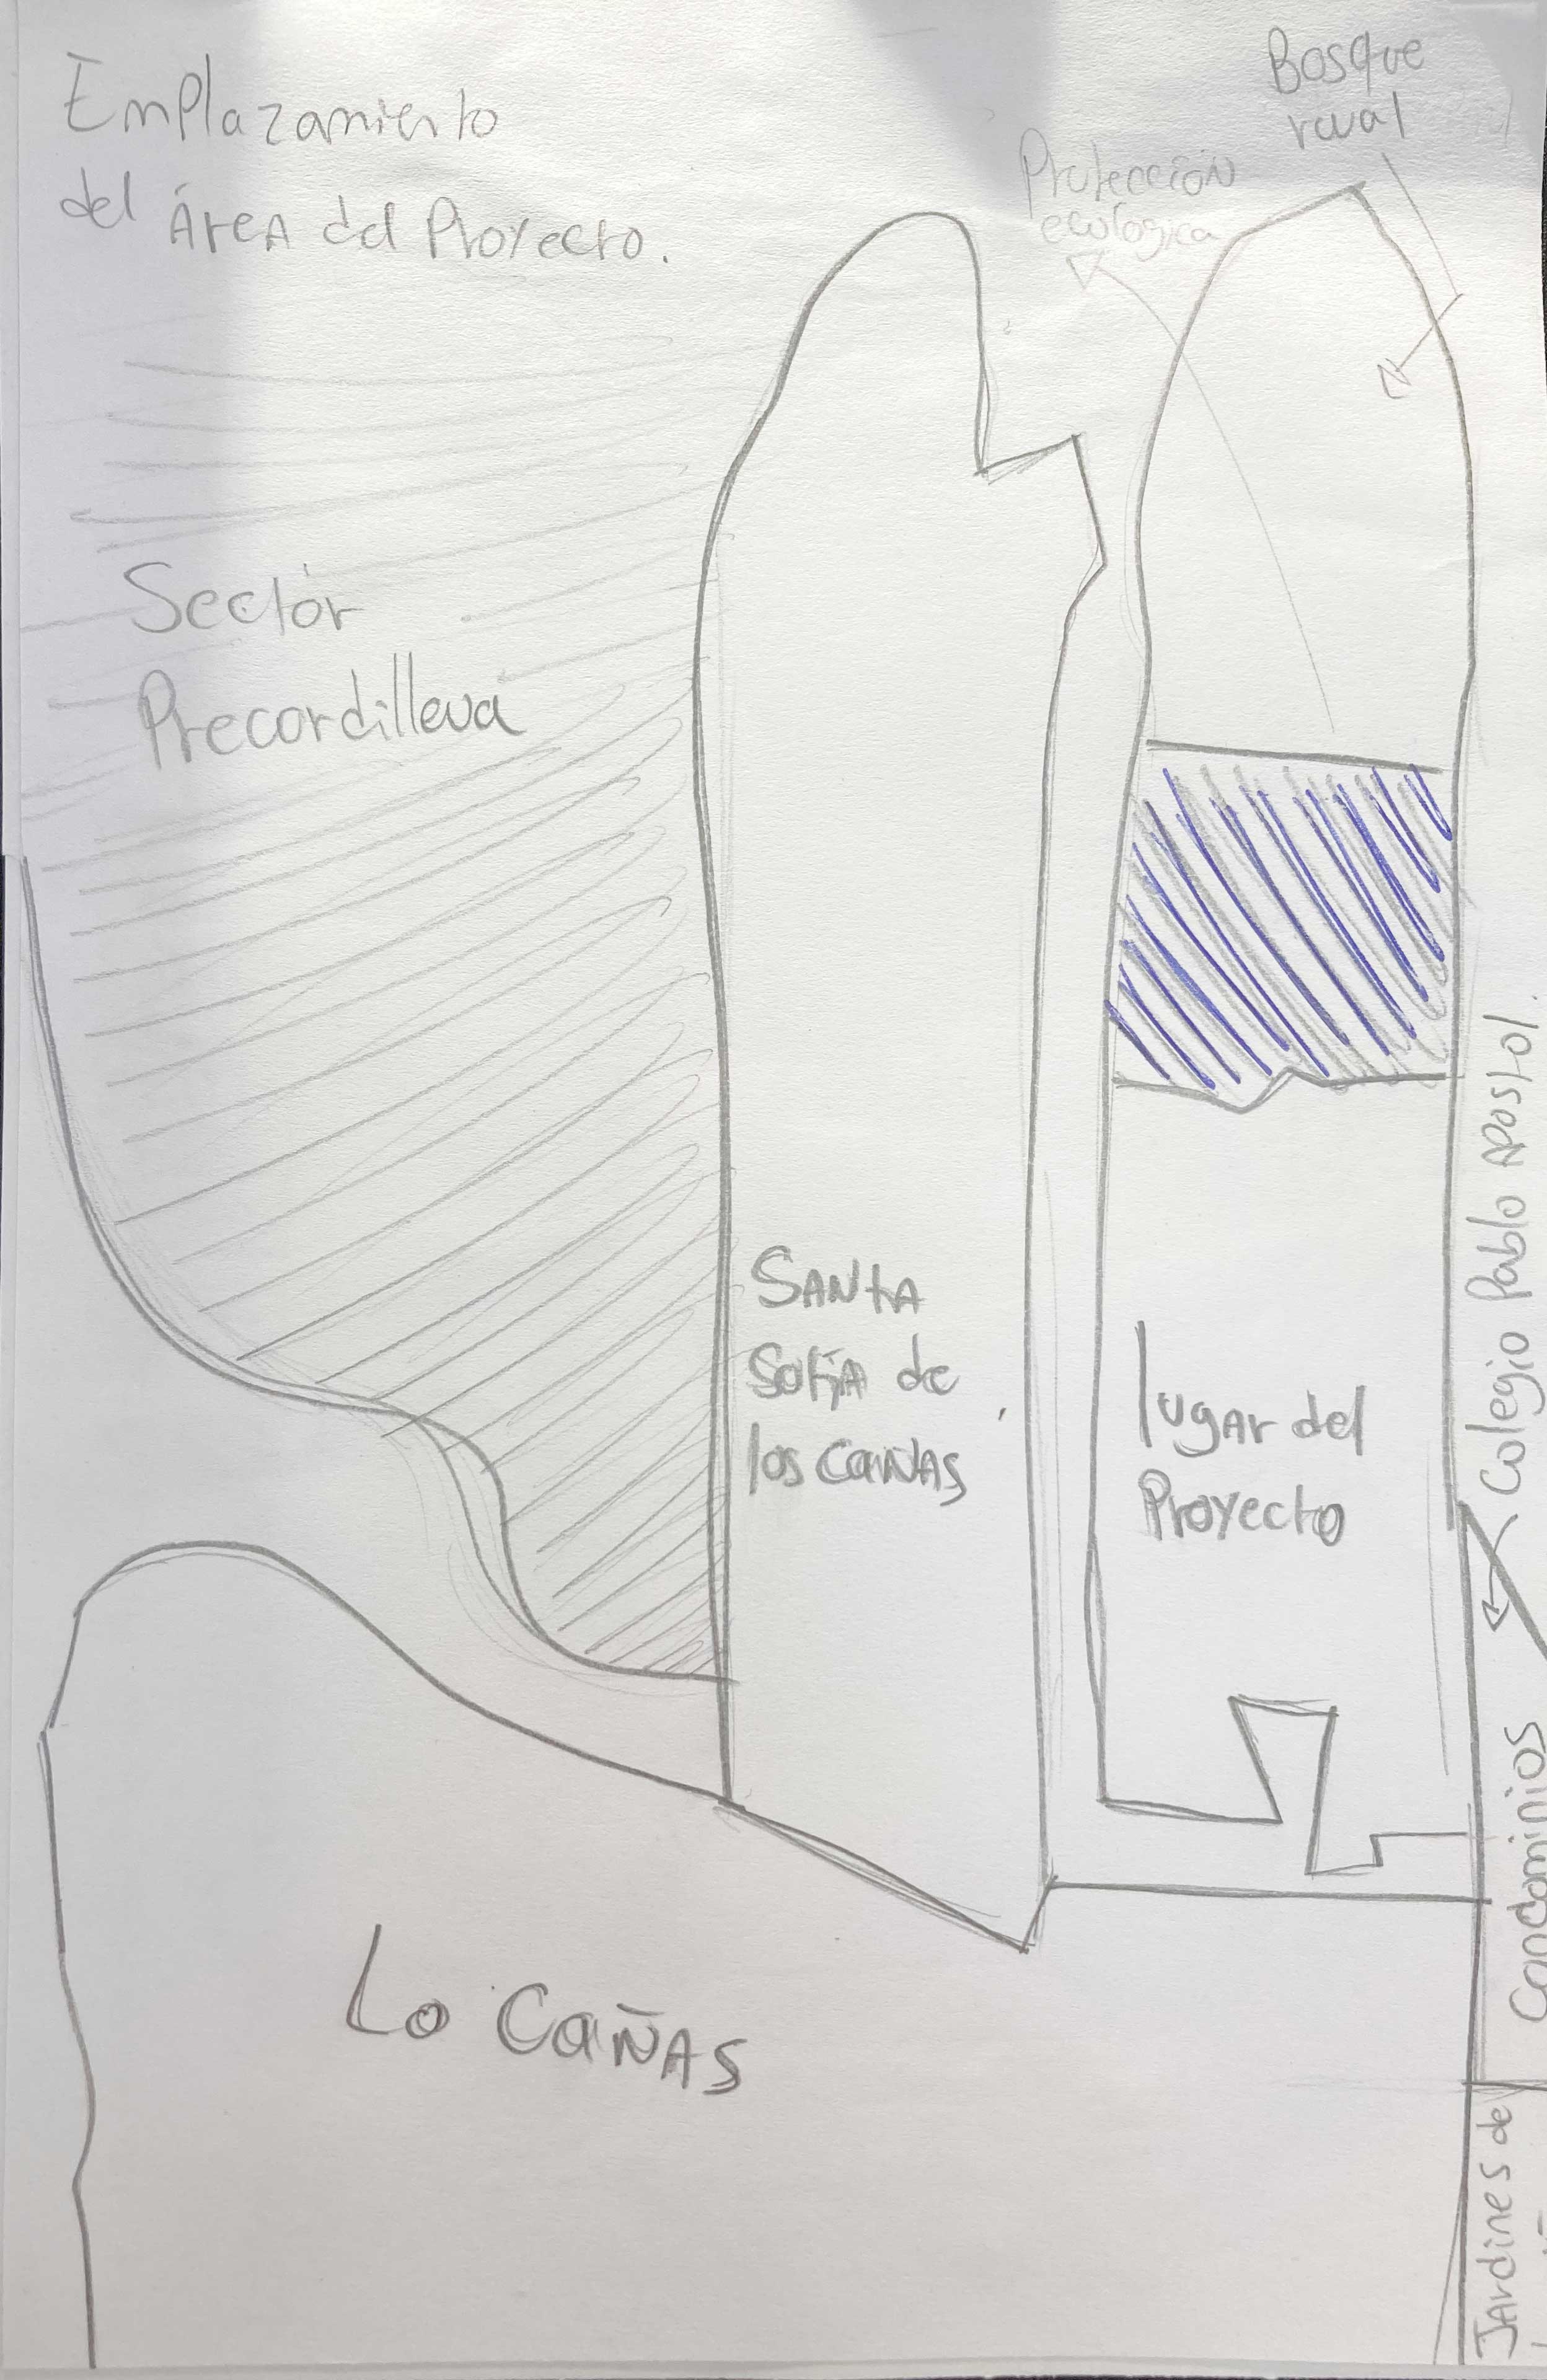 Emplazamiento
del Área del Proyecto.
Bosque
rural
Protección
ecológica
Sector
Precordillera
Santa
Sofía de
los cañas
lugar del
Proyecto
Colegio Pablo Apostol.
Condominios
Lo Cañas
Jardines de